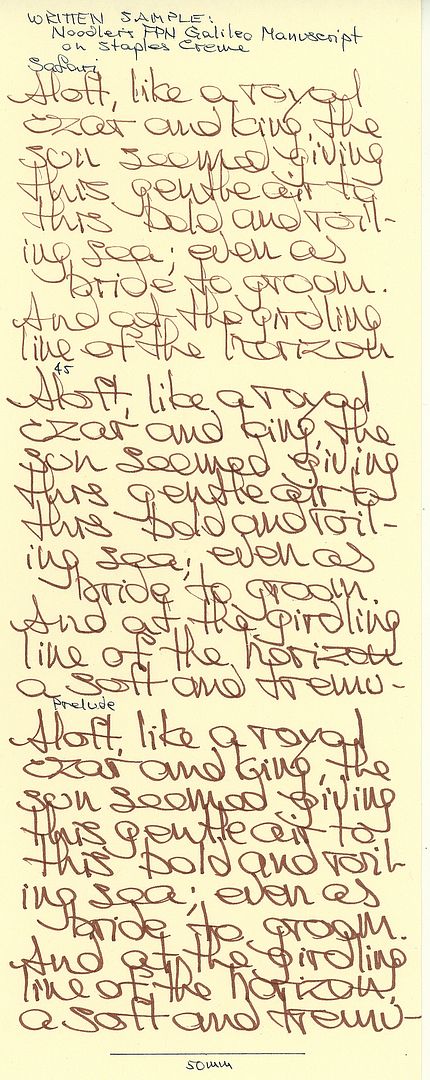 WRITTEN SAMPLE:
Noodlers FPN Galileo Manuscript
on Staples Creme
Safari
Aloft, like a royal
czar and king, the
sun seemed giving
this gentle air to
this bold and roll-
ing sea; even as
bride to groom.
And at the girdling
line of the horizon
45
Aloft, like a royal
czar and king, the
sun seemed giving
this gentle air to
this bold and roll-
ing sea; even as
bride to groom.
And at the girdling
line of the horizon
a soft and tremu-
Prelude
Aloft, like a royal
czar and king, the
sun seemed giving
this gentle air to
this bold and roll-
ing sea; even as
bride to groom.
And at the girdling
line of the horizon,
a soft and tremu-
50mm